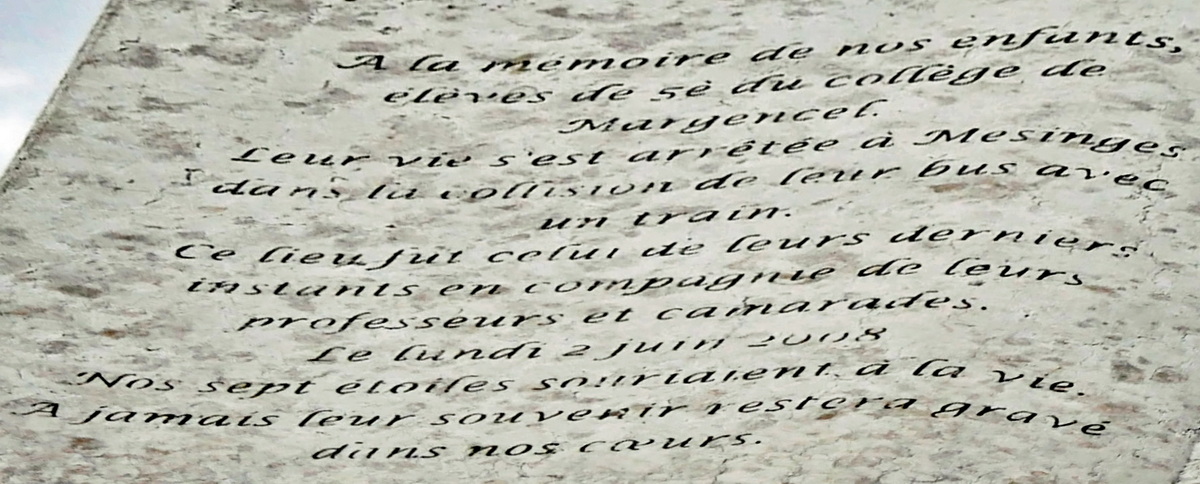 A la mémoire de nos enfants,
élèves de 5è du collège de
Margencel.
Leur vie s'est arrêtée à Mesinges
dans la collision de leur bus avec
un train.
Ce lieu fut celui de leurs derniers
instants en compagnie de leurs
professeurs et camarades.
Le lundi 2 juin 2008
Nos sept étoiles souriaient à la vie.
A jamais leur souvenir restera gravé
dans nos cœurs.